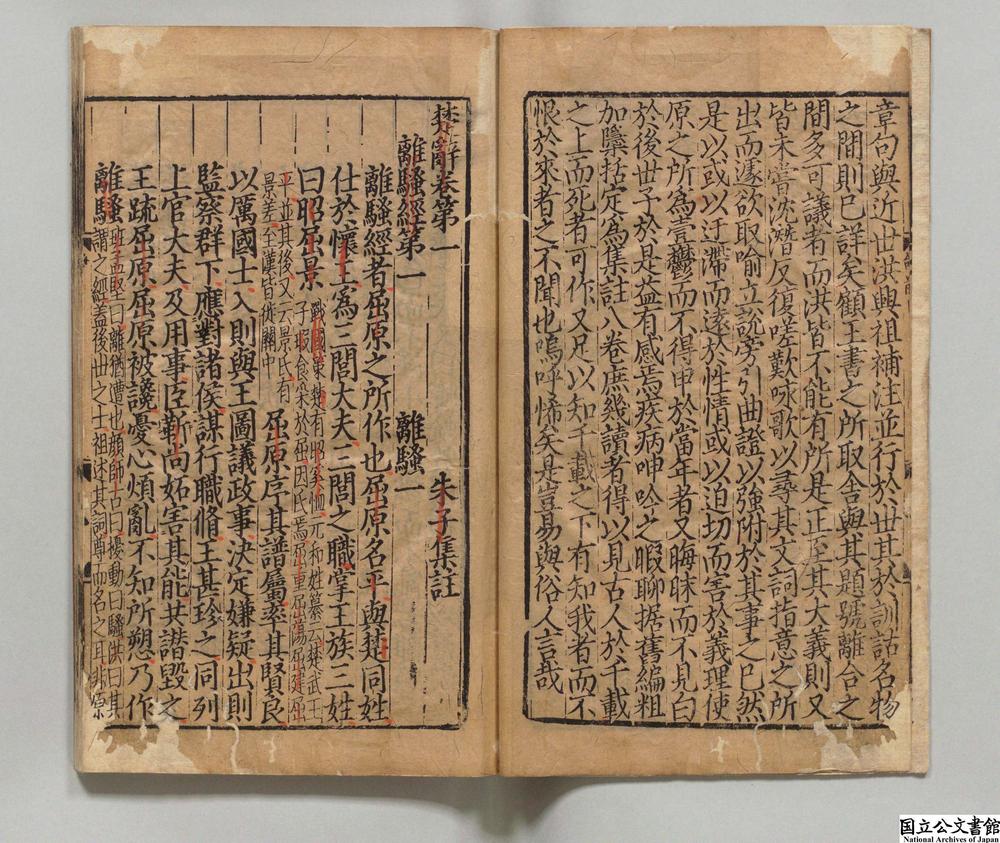 章句與近世洪興祖補注並行於世其於訓詁名物
之間則已詳矣顧王書之所取舍與其題號離合之
間多可議者而洪皆不能有所是正至其大義則又
皆未嘗沈潛反復嗟歎咏歌以尋其文詞指意之所
出而遽欲取喻立說旁引曲證以強附於其事之已然
是以或以迂滯而遠於性情或以迫切而害於義理使
原之所為壹鬱而不得申於當年者又晦昧而不見白
於後世予於是益有感焉疾病呻吟之暇聊据舊編粗
加檃括定為集註八卷庶幾讀者得以見古人於千載
之上而死者可作又足以知千載之下有知我者而不
恨於來者之不聞也嗚呼悕矣是豈易與俗人言哉
楚辭卷第一 朱子集註
離騷經第一 離騷一
離騷經者屈原之所作也屈原名平與楚同姓
仕於懷王為三閭大夫三閭之職掌王族三姓
曰昭屈景 戰國策楚有昭奚恤元和姓纂云楚武王子瑕食采於屈因氏焉屈重屈蕩屈建屈
平並其後又云景氏有景差至漢皆徙關中 屈原序其譜屬率其賢良
以厲國士入則與王圖議政事決定嫌疑出則
監察群下應對諸侯謀行職脩王甚珍之同列
上官大夫及用事臣靳尚妬害其能共譖毀之
王疏屈原屈原被讒憂心煩亂不知所愬乃作
離騷 班孟堅曰離猶遭也顏師古曰擾動曰騷洪曰其謂之經蓋後世之士祖述其詞尊而名之耳非原
国立公文書館
National Archives of Japan